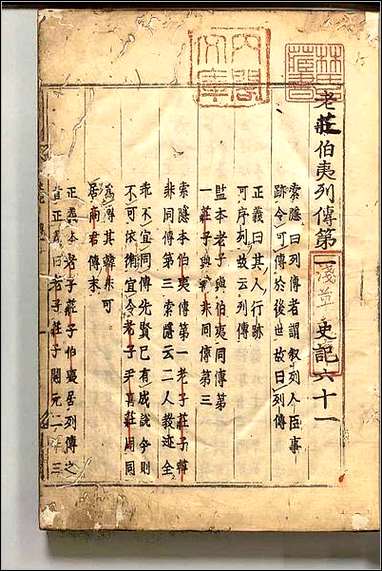 老莊伯夷列傳第一 史記六十一
索隱曰列傳者謂敘列人臣事
跡令可傳於後世故曰列傳
正義曰其人行跡
可序列故云列傳
監本老子與伯夷同傳第
一莊子與韓非同傳第三
索隱本伯夷傳第一老子莊子韓
非同傳第三索隱云二人教迹全
乖不宜同傳先賢已有成說今則
不可依循宜令老子尹喜莊周同
為傳其韓非可
居商君傳末
正義本老子莊子伯夷居列傳之
首正義曰老子莊子開元二十三
內閣文庫
林氏藏書
淺草